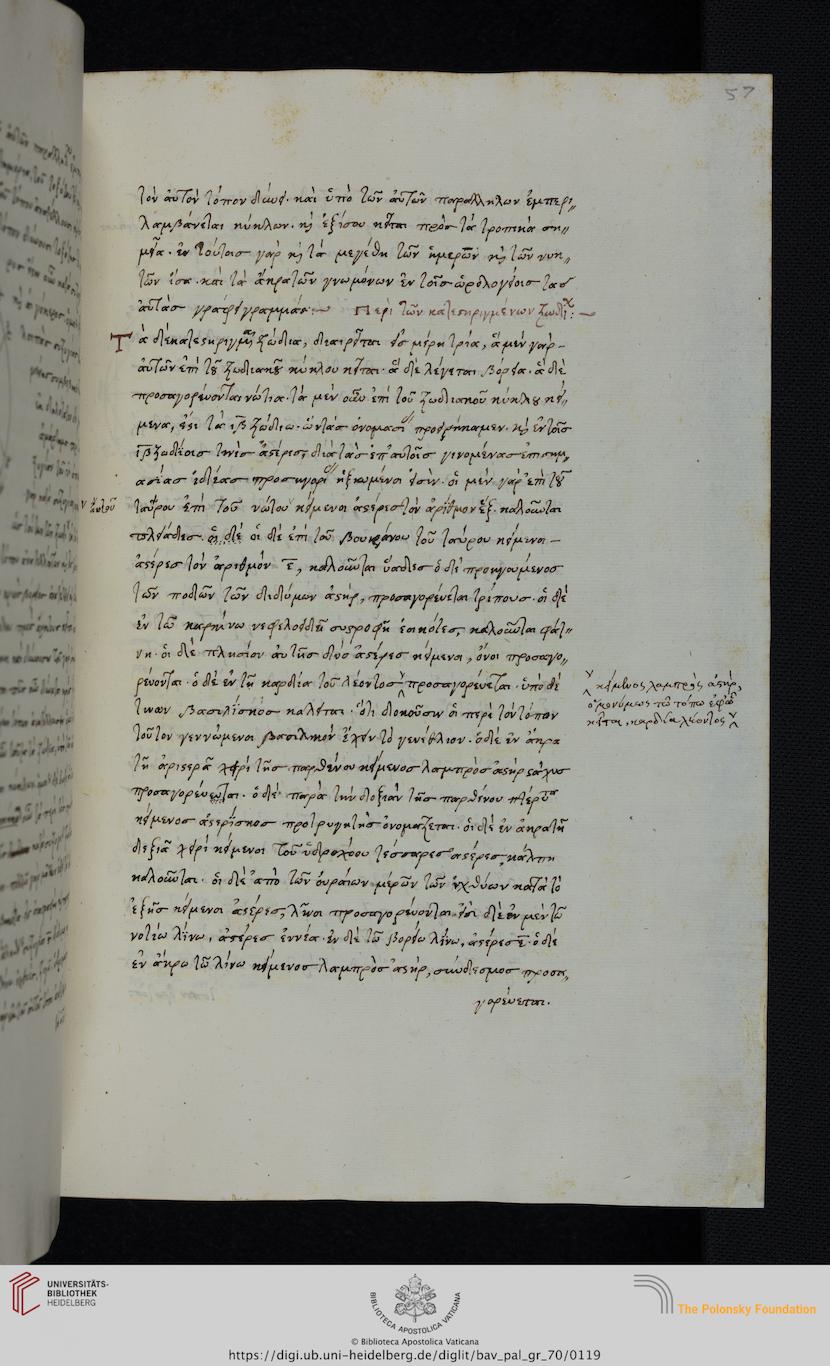 57
τὸν αὐτὸν τόπον δύνει· καὶ ὑπὸ τῶν αὐτῶν παραλλήλων ἐμπερι〃
λαμβάνεται κύκλων· κỳ ἐξίσου κεῖται πρὸς τὰ τροπικὰ ση〃
μεῖα· ἐν τούτοις γὰρ κỳ τὰ μεγέθη τῶν ἡμερῶν κỳ τῶν νυκ〃
τῶν ἴσα· καὶ τὰ ἄκρα τῶν γνωμόνων ἐν τοῖς ὡρολογίοις τὰς
αὐτὰς γράφει γραμμάς· Περὶ τῶν κατεστηριγμένων ζωδί:
Τὰ δὲ κατεστηριγμένα ζώδια, διαιρεῖται εἰς μέρη τρία, ἃ μὲν γὰρ
αὐτῶν ἐπὶ τοῦ ζωδιακοῦ κύκλου κεῖται· ἃ δὲ λέγεται βόρεια· ἃ δὲ
προσαγορεύονται νότια· τὰ μὲν οὖν ἐπὶ τοῦ ζωδιακοῦ κύκλου κεί〃
μενα, ἐστὶ τὰ ιβ ζώδια· ὧν τὰς ὀνομασί προειρήκαμεν· κỳ ἐν τοῖς
ιβ ζωδίοις τινὲς ἀστέρες, διὰ τὰς ἐπ' αὐτοῖς γινομένας ἐπισημ〃
ασίας ἰδίας προσηγορί ἠξιωμένοι εἰσίν· οἱ μὲν γὰρ ἐπὶ τοῦ
ταύρου ἐπὶ τοῦ νώτου κείμενοι ἀστέρες τὸν ἀριθμὸν ἓξ καλοῦνται
πλειάδες· οἱ δὲ οἱ δὲ ἐπὶ τοῦ βουκράνου τοῦ ταύρου κείμενοι
ἀστέρες τὸν ἀριθμὸν ε, καλοῦνται ὑάδες ὁ δὲ προηγούμενος
τῶν ποδῶν τῶν διδύμων ἀστήρ, προσαγορεύεται τρίπους· οἱ δὲ
ἐν τῶ καρκίνω νεφελοειδεῖ συστροφῆ ἐοικότες, καλοῦνται φάτ〃
νη· οἱ δὲ πλησίον αὐτῆς δύο ἀστέρες κείμενοι, ὄνοι προσαγο〃
ρεύονται· ὁ δὲ ἐν τῆ καρδία τοῦ λέοντος προσαγορεύεται· ὑπὸ δέ
τινων βασιλίσκος καλεῖται· ὅτι δοκοῦσιν οἱ περὶ τὸν τόπον
τοῦτον γεννώμενοι βασιλικὸν ἔχειν τὸ γενέθλιον· ὁ δὲ ἐν ἄκρα
τῆ ἀριστερᾶ χειρὶ τῆς παρθένου κείμενος λαμπρὸς ἀστὴρ στάχυς
προσαγορεύεται· ὁ δὲ παρὰ τὴν δεξιὰν τῆς παρθένου πτέρυγα
κείμενος ἀστερίσκος προτρυγητὴς ὀνομάζεται· οἱ δὲ ἐν ἄκρα τῆ
δεξιᾶ χειρὶ κείμενοι τοῦ ὑδροχόου τέσσαρες ἀστέρες κάλπη
καλοῦνται· οἱ δὲ ἀπὸ τῶν οὐραίων μερῶν τῶν ἰχθύων κατὰ τὸ
ἑξῆς κείμενοι ἀστέρες, λῖνοι προσαγορεύονται· εἰσὶ δὲ ἐν μὲν τῶ
νοτίω λίνω, ἀστέρες ἐννέα· ἐν δὲ τῶ βορείω λίνω, ἀστέρες ε· ὁ δὲ
ἐν ἄκρω τῶ λίνω κείμενος λαμπρὸς ἀστήρ, σύνδεσμος προσα〃
γορεύεται.
κείμενος λαμπρὸς ἀστήρ,
ὁμωνύμως τῶ τόπω ἐφ' ὧ
κεῖται, καρδία λέοντος
UNIVERSITÄTS-
BIBLIOTHEK
HEIDELBERG
BIBLIOTECA APOSTOLICA VATICANA
The Polonsky Foundation
© Biblioteca Apostolica Vaticana
https://digi.ub.uni-heidelberg.de/diglit/bav_pal_gr_70/0119